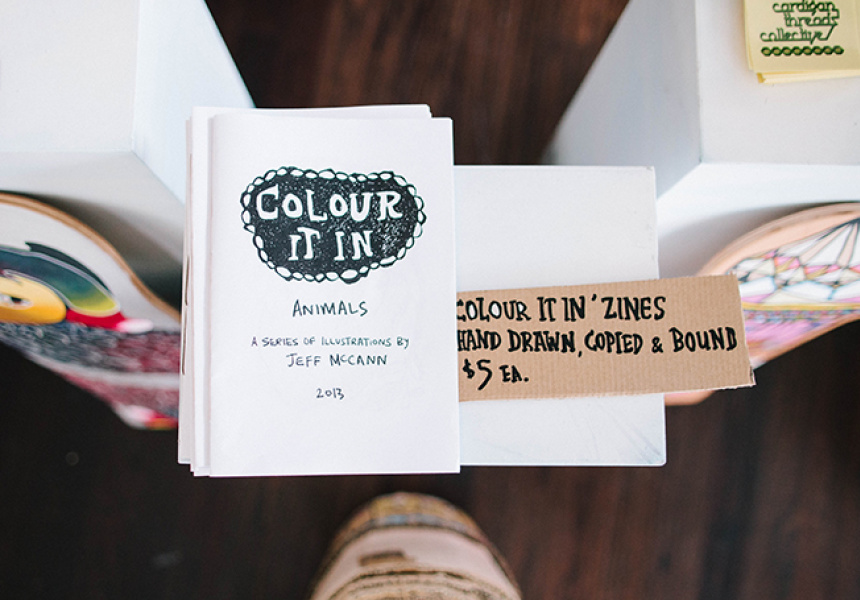 COLOUR
IT IN
ANIMALS
A SERIES OF ILLUSTRATIONS BY
JEFF MCCANN
2013
COLOUR IT IN 'ZINES
HAND DRAWN, COPIED & BOUND
$5 EA.
cardigan
thread
collective